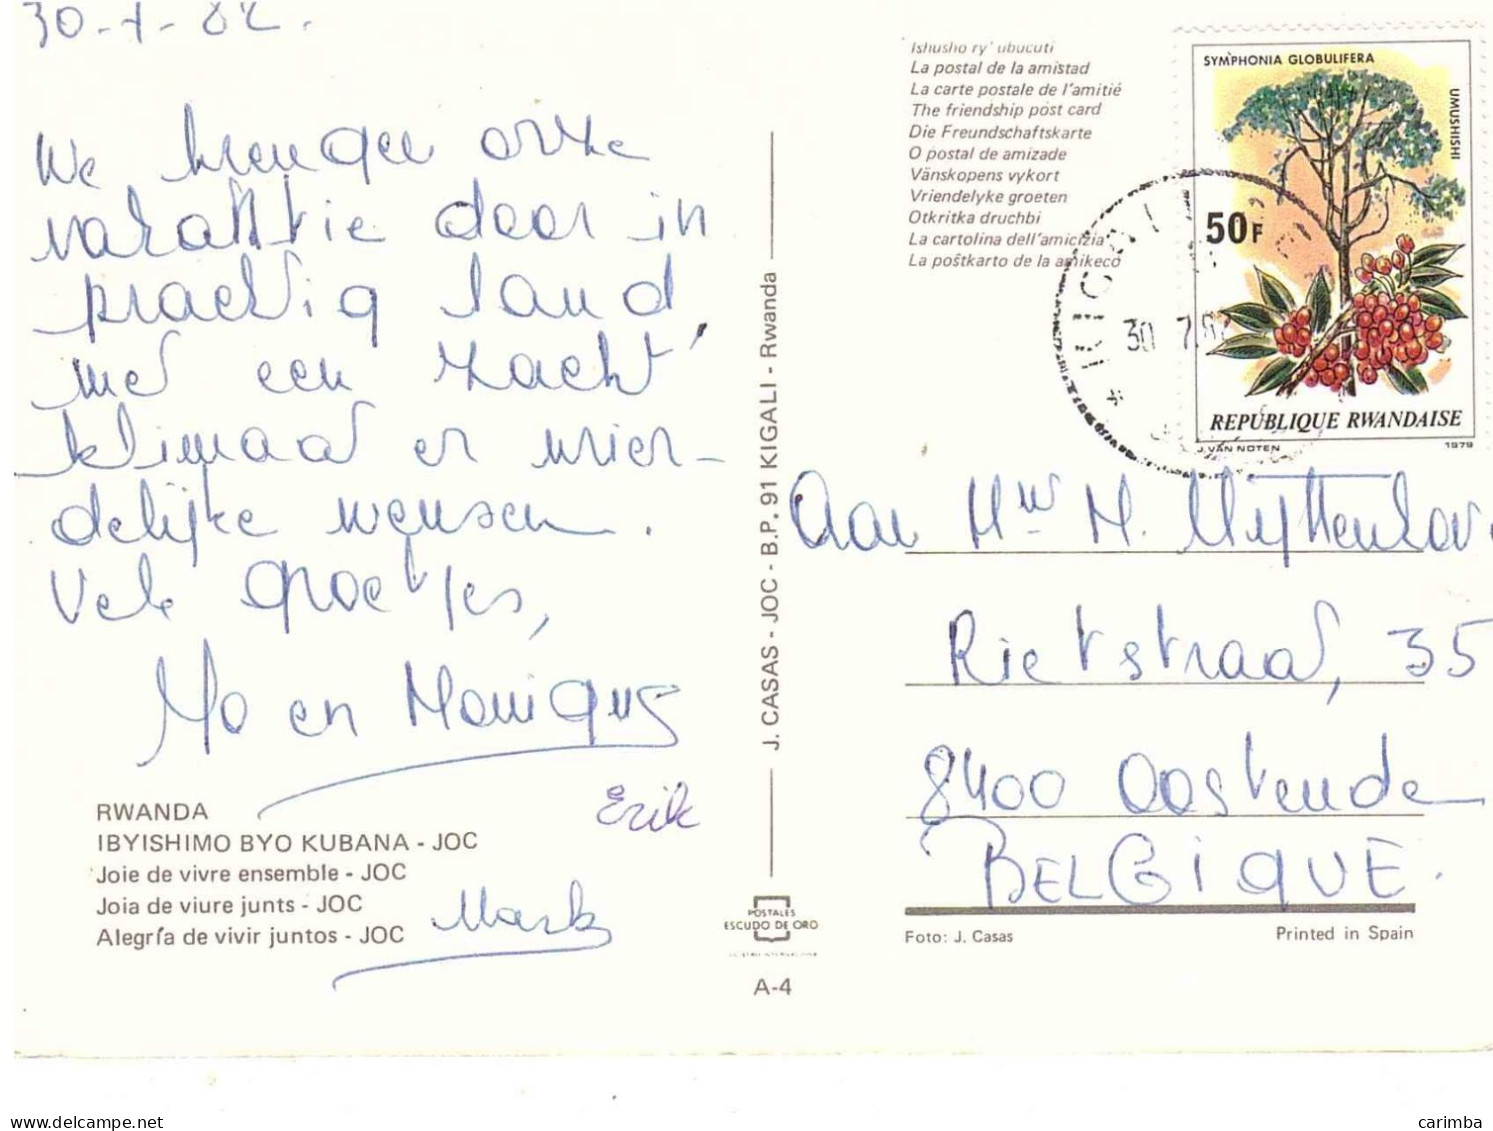 30-7-82.
We brengen onze
vakantie door in
prachtig land,
met een zacht
klimaat en vrien-
delijke mensen.
Vele groetjes,
Mo en Monique
Erik
Mark
RWANDA
IBYISHIMO BYO KUBANA - JOC
Joie de vivre ensemble - JOC
Joia de viure junts - JOC
Alegría de vivir juntos - JOC
J. CASAS - JOC - B.P. 91 KIGALI - Rwanda
POSTALES
ESCUDO DE ORO
A-4
Ishusho ry' ubucuti
La postal de la amistad
La carte postale de l'amitié
The friendship post card
Die Freundschaftskarte
O postal de amizade
Vänskopens vykort
Vriendelyke groeten
Otkritka druchbi
La cartolina dell'amicizia
La poŝtkarto de la amikeco
SYMPHONIA GLOBULIFERA
UMUSHISHI
50F
REPUBLIQUE RWANDAISE
J. VAN NOTEN 1979
* KIGALI
30 7.82
Aan Mw M. Uyttenhov
Rietstraat, 35
8400 Oostende
BELGIQUE.
Foto: J. Casas
Printed in Spain
carimba